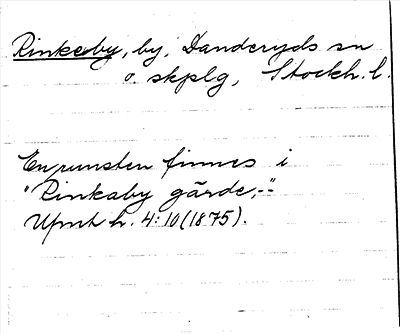 Rinkeby, by, Danderyds sn
o. skplg, Stockh. l.
En runsten finnes i
"Rinkaby gärde,--"
Upmt h. 4:10 (1875).